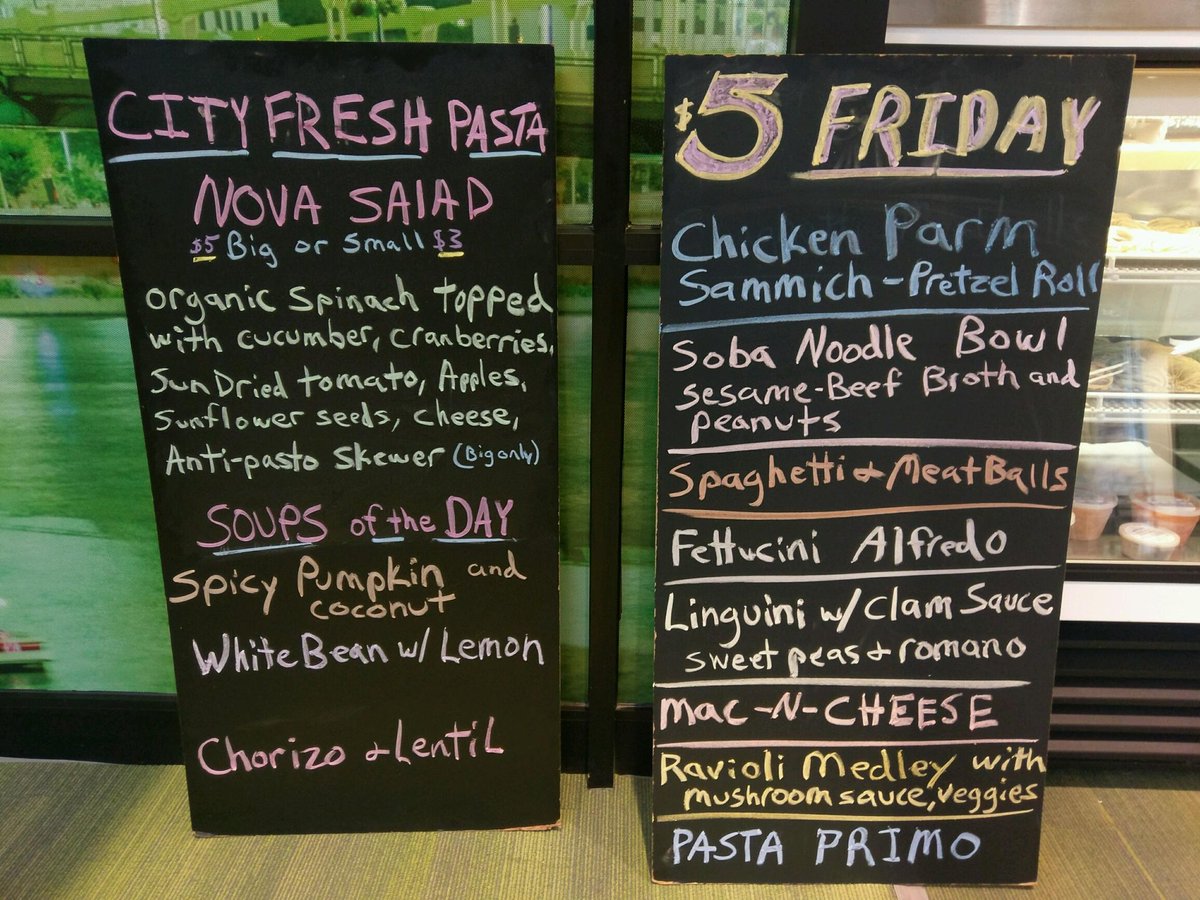 CITY FRESH PASTA
NOVA SALAD
$5 Big or Small $3
Organic Spinach topped
with cucumber, cranberries,
Sun Dried tomato, Apples,
Sunflower seeds, cheese,
Anti-pasto Skewer (Big only)
SOUPS of the DAY
Spicy Pumpkin and
coconut
White Bean w/ Lemon
Chorizo & Lentil
$5 FRIDAY
Chicken Parm
Sammich - Pretzel Roll
Soba Noodle Bowl
sesame-Beef Broth and
peanuts
Spaghetti & MeatBalls
Fettucini Alfredo
Linguini w/ Clam Sauce
sweet peas & romano
Mac-N-CHEESE
Ravioli Medley with
mushroom sauce, veggies
PASTA PRIMO